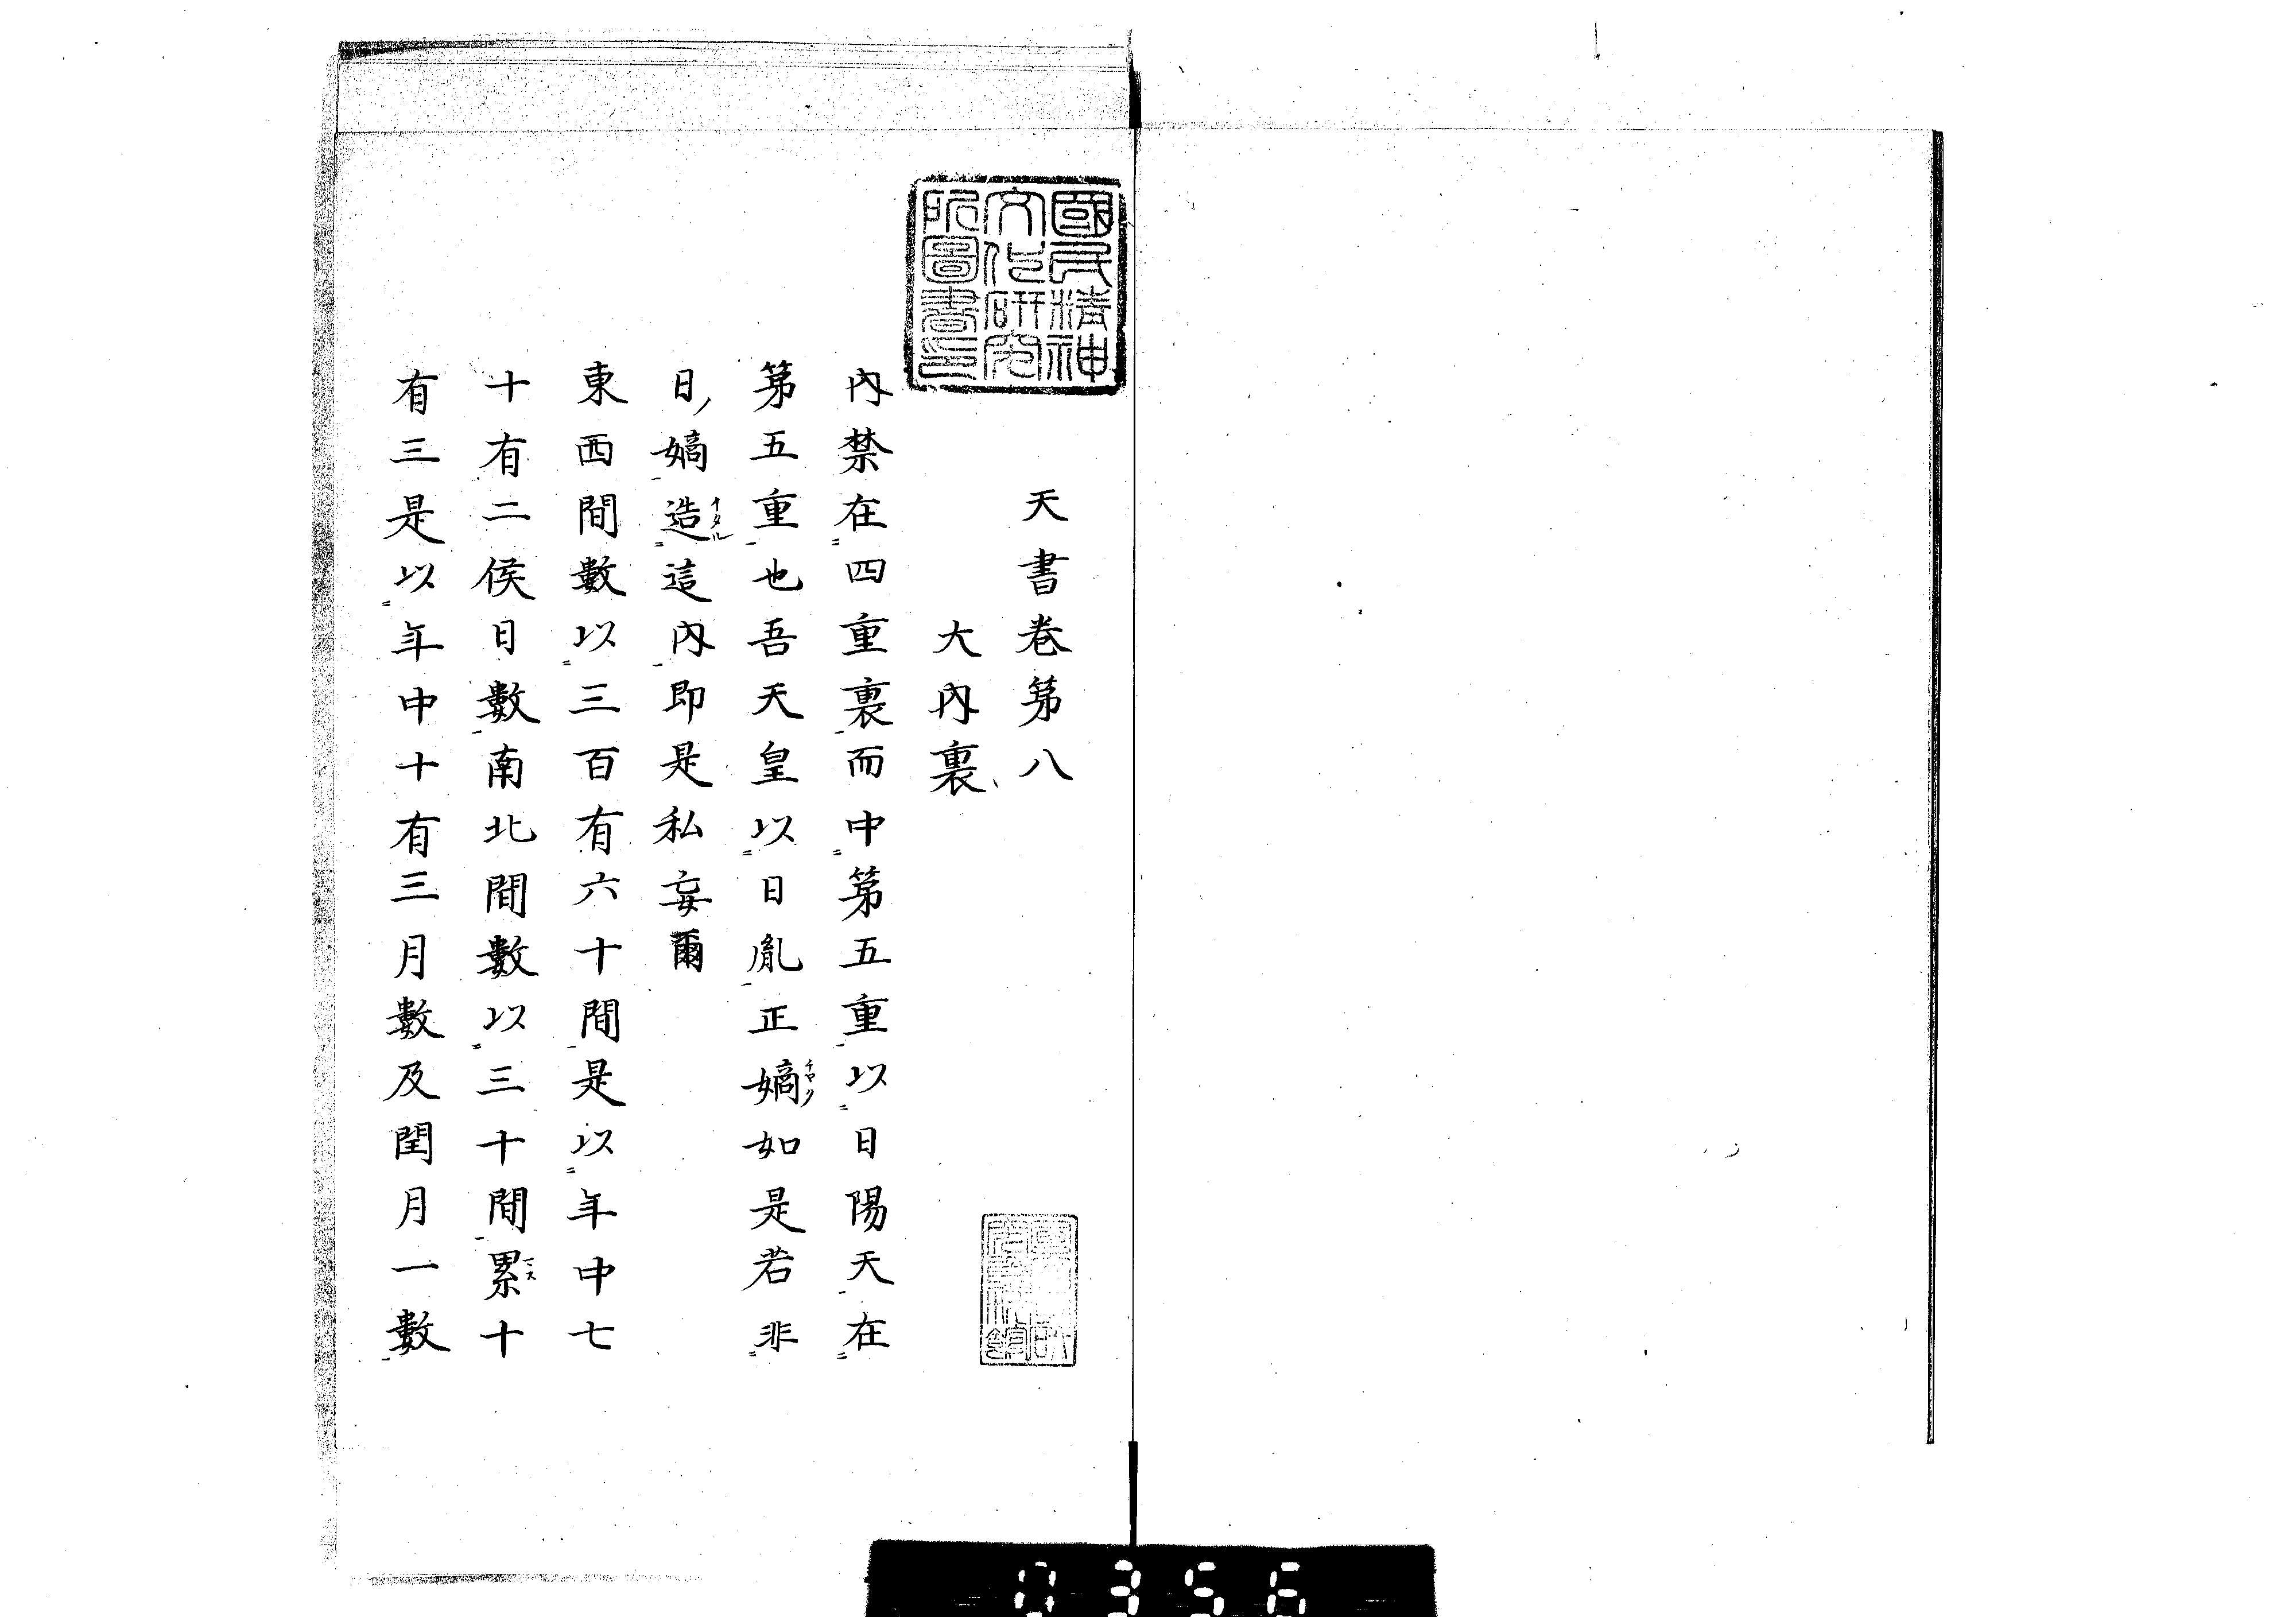 國民精神
文化研究
所圖書印
天書卷第八
大內裏
內禁在四重裏而中第五重以日陽天在
第五重也吾天皇以日胤正嫡如是若非
日嫡造這內即是私妄爾
東西間數以三百有六十間是以年中七
十有二候日數南北間數以三十間累十
有三是以年中十有三月數及閏月一數
イタル
0356